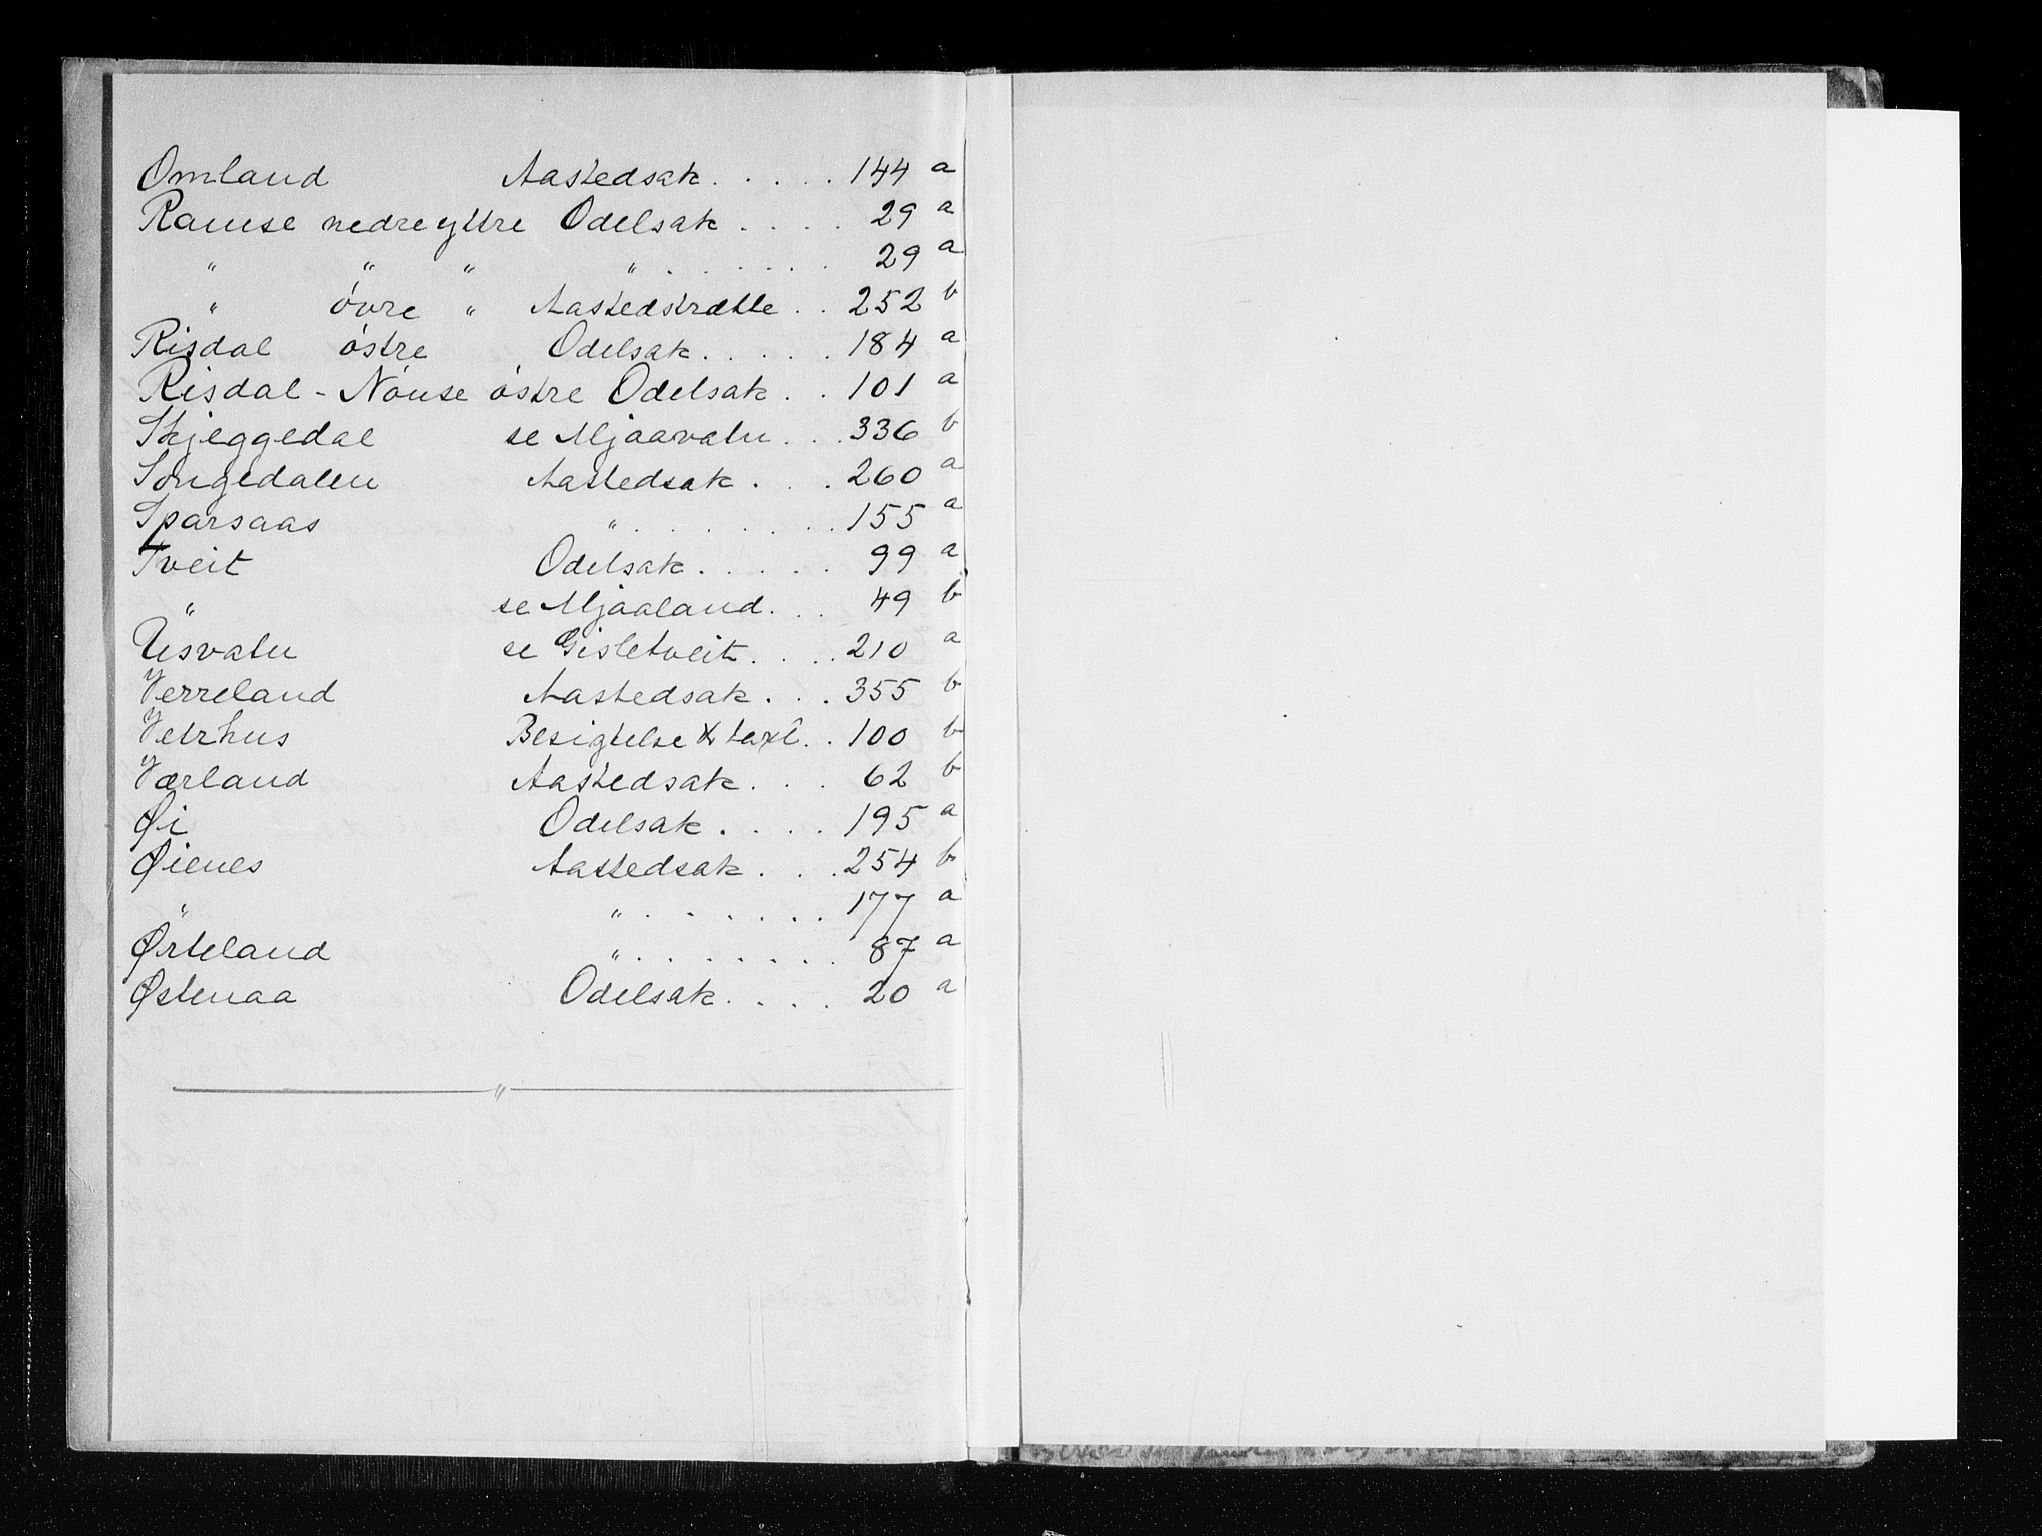 Omland Aastedsak. . . . . 144 a
Ramse nedre yttre Odelsak . . . . 29 a
" " " " . . . . . . 29 a
" övre " Aastedstrætte . . 252 b
Risdal östre Odelsak. . . . . 184 a
Risdal - Nöuse östre Odelsak . . 101 a
Skjeggedal se Mjaavatn . . . 336 b
Songedalen Aastedsak . . . 260 a
Sparsaas " . . . . . . 155 a
Tveit Odelsak . . . . . 99 a
" se Mjaaland. . . 49 b
Usvatn se Gisletveit . . . . 210 a
Verreland Aastedsak . . . 355 b
Vetrhus Besigtelse & taxt. . 100 b
Værland Aastedsak . . . 62 b
Øi Odelsak . . . . 195 a
Øienes Aastedsak . . . 254 b
" " . . . . . . . 177 a
Ørteland " . . . . . . . . 87 a
Østenaa Odelsak . . . . 20 a
"